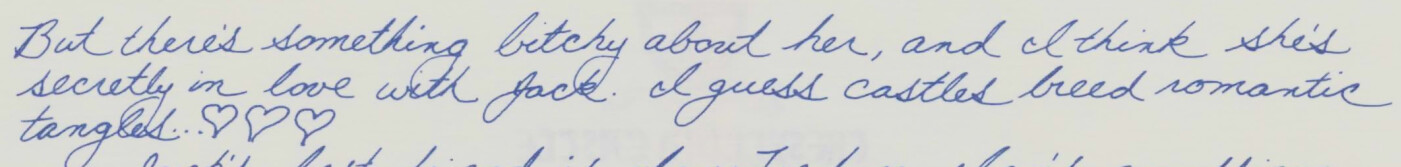 But there's something bitchy about her, and I think she's
secretly in love with Jack. I guess castles breed romantic
tangles...♡♡♡